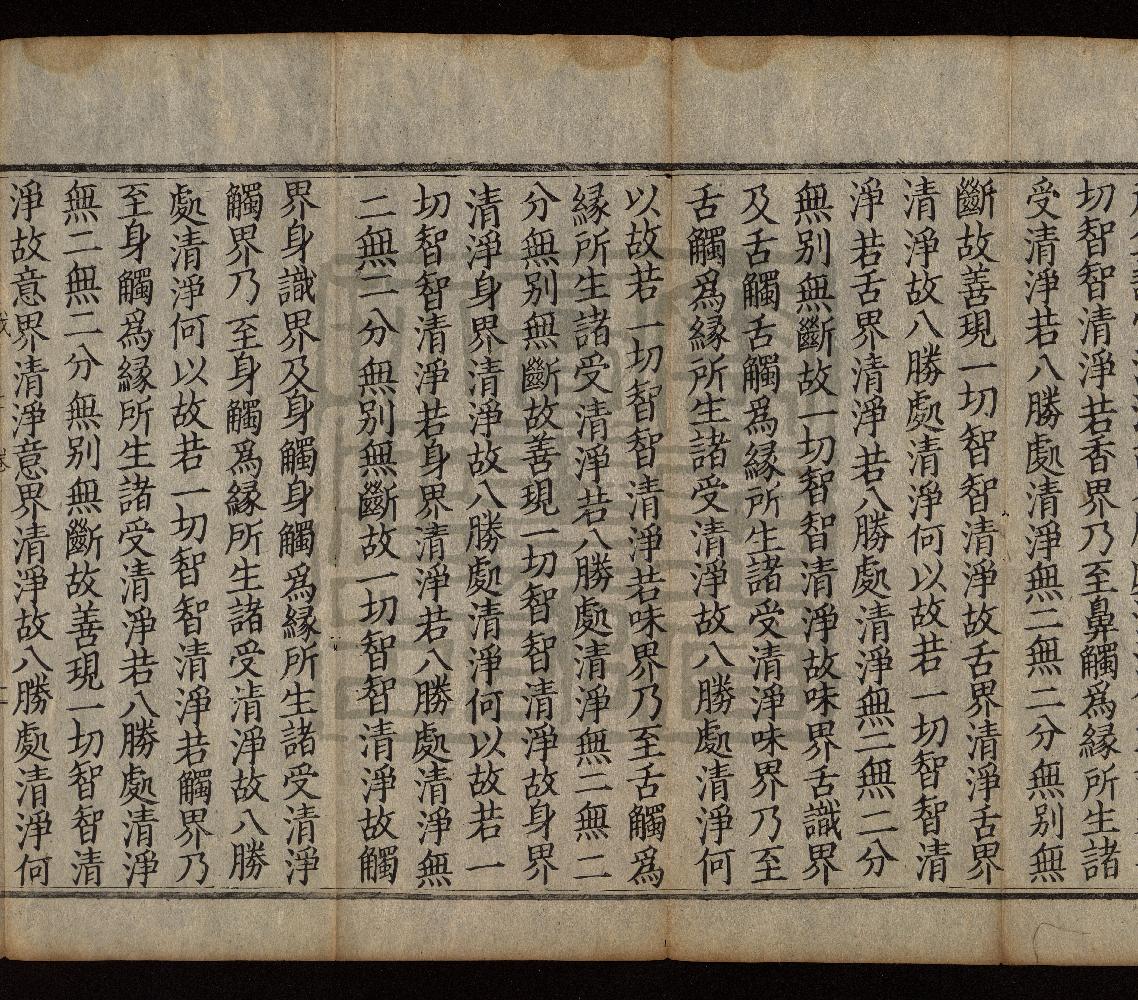 切智智清淨若香界乃至鼻觸爲緣所生諸
受清淨若八勝處清淨無二無二分無别無
斷故善現一切智智清淨故舌界清淨舌界
清淨故八勝處清淨何以故若一切智智清
淨若舌界清淨若八勝處清淨無二無二分
無别無斷故一切智智清淨故味界舌識界
及舌觸舌觸爲緣所生諸受清淨味界乃至
舌觸爲緣所生諸受清淨故八勝處清淨何
以故若一切智智清淨若味界乃至舌觸爲
緣所生諸受清淨若八勝處清淨無二無二
分無别無斷故善現一切智智清淨故身界
清淨身界清淨故八勝處清淨何以故若一
切智智清淨若身界清淨若八勝處清淨無
二無二分無别無斷故一切智智清淨故觸
界身識界及身觸身觸爲緣所生諸受清淨
觸界乃至身觸爲緣所生諸受清淨故八勝
處清淨何以故若一切智智清淨若觸界乃
至身觸爲緣所生諸受清淨若八勝處清淨
無二無二分無别無斷故善現一切智智清
淨故意界清淨意界清淨故八勝處清淨何